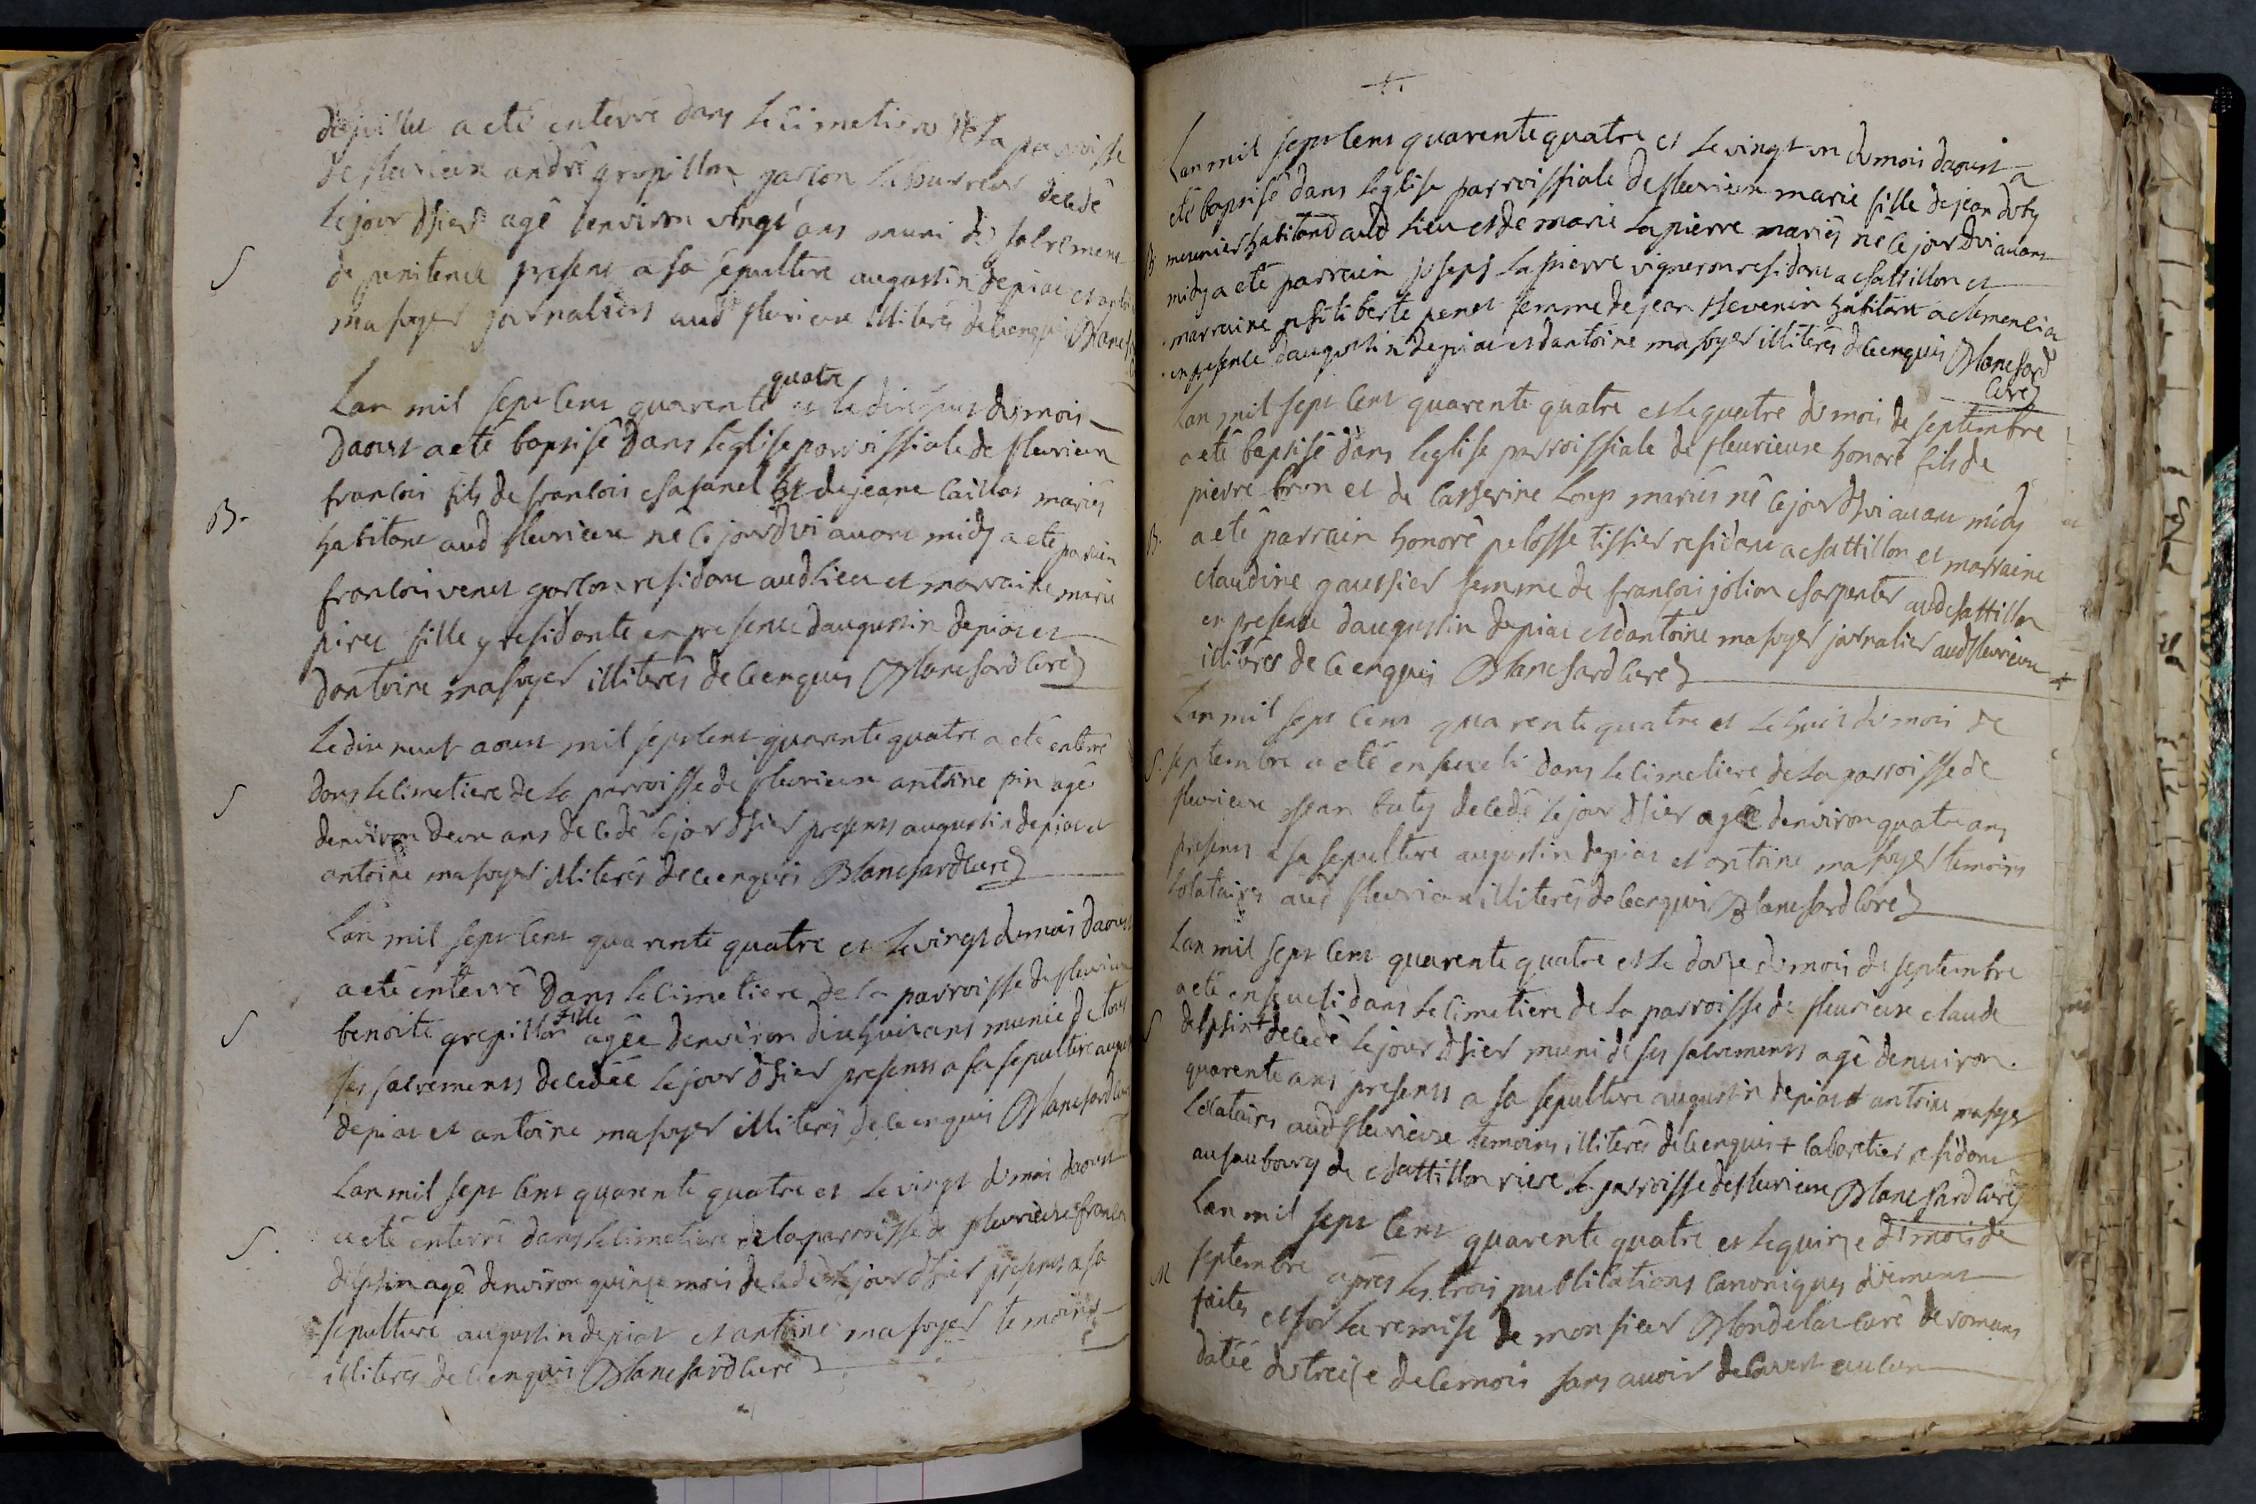 dejuillet a eté enterré dans le cimetiere de la parroisse
de fleurieux andré grepillon garçon laboureur decedé
le jour dhier agé denviron vingt ans muni du sacrement
S
de penitence present a sa sepulture augustin depiat et antoi
masoyer journaliers aud fleurieux illiterés de ce enquis Blanch
Lan mil sept cent quarente quatre et le dixhuit du mois
daoust a eté baptisé dans leglise parroissiale de fleurieux
francois fils de francois chasanel et de jeane caillat mariés
B.
habitant aud fleurieux né ce jourdvi avant midy a eté parrain
francois venet garcon residant aud lieu et marraine marie
piret fille y residante en presence daugustin depiat et
dantoine masoyer illiterés de ce enquis Blanchard curé
Le dix neuf aoust mil sept cent quarente quatre a eté enterré
S
dans le cimetiere de la parroisse de fleurieux antoine pin agé
denviron deux ans decedé le jour dhier presents augustin depiat et
antoine masoyer illiterés de ce enquis Blanchard curé
Lan mil sept cent quarente quatre et le vingt du mois daoust
a eté enterré dans le cimetiere de la parroisse de fleurieux
S
benoite grepillon fille agée denviron dixhuit ans munie de tous
ses sacrements decedée le jour dhier presents a sa sepulture august
depiat et antoine masoyer illiterés de ce enquis Blanchard curé
Lan mil sept cent quarente quatre et le vingt du mois daoust
S.
a eté enterré dans le cimetiere de la parroisse de fleurieux francois
delphin agé denviron quinse mois decedé le jour dhier presents a sa
sepulture augustin depiat et antoine masoyer temoins
illiterés de ce enquis Blanchard curé
Lan mil sept cent quarente quatre et le vingt un du mois daoust a
eté baptisé dans leglise parroissiale de fleurieux marie fille de jean duty
B
meunier habitant aud lieu et de marie lapierre mariés né ce jourdvi avant
midy a eté parrain joseph lapierre vigneron residant a chattillon et
marraine philiberte penet femme de jean thevenin habitant a clemencia
en presence daugustin depiat et dantoine masoyer illiterés de ce enquis Blanchard
curé
Lan mil sept cent quarente quatre et le quatre du mois de septembre
a eté baptisé dans leglise parroissiale de fleurieux honoré fils de
pierre brun et de catherine loup mariés né ce jourdhvi avant midy
B.
a eté parrain honoré pelosse tissier residant a chattillon et marraine
claudine gaussier femme de francois jolion charpentier aud chattillon
en presence daugustin depiat et dantoine masoyer journalier aud fleurieux
illiterés de ce enquis Blanchard curé
Lan mil sept cent quarente quatre et le huit du mois de
S.
septembre a eté enseveli dans le cimetiere de la parroisse de
fleurieux jean duty decedé le jour dhier agé denviron quatre ans
presents a sa sepulture augustin depiat et antoine masoyer temoins
locataires aud fleurieux illiterés de ce enquis Blanchard curé
Lan mil sept cent quarente quatre et le douze du mois de septembre
a eté enseveli dans le cimetiere de la parroisse de fleurieux claude
S
delphin + decedé le jour dhier muni de ses sacrements agé denviron
quarente ans presents a sa sepulture augustin depiat et antoine masoyer
locataires aud fleurieux temoins illiterés de ce enquis + cabaretier residant
au faubourg de chattillon riere la parroisse de fleurieux Blanchard curé
Lan mil sept cent quarente quatre et le quinze du mois de
M
septembre apres les trois publications canoniques düement
faites et sur la remise de monsieur Blondelat curé de romans
datée du treise de ce mois sans avoir decouvert aucun